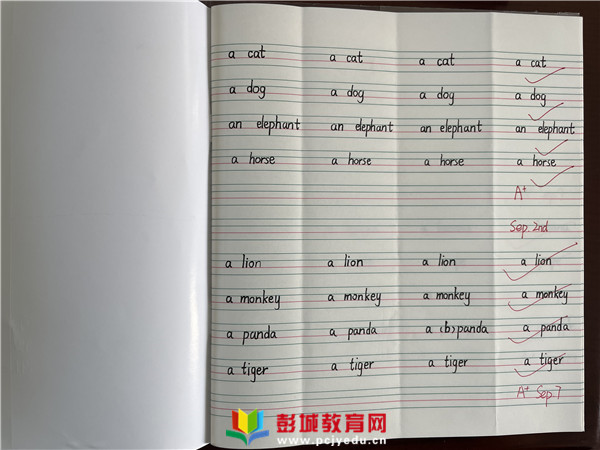 a cat a cat a cat a cat
a dog a dog a dog a dog
an elephant an elephant an elephant an elephant
a horse a horse a horse a horse
A+
Sep. 2nd
a lion a lion a lion a lion
a monkey a monkey a monkey a monkey
a panda a panda a (b) panda a panda
a tiger a tiger a tiger a tiger
A+ Sep. 7
彭城教育网
www.pcjyedu.cn